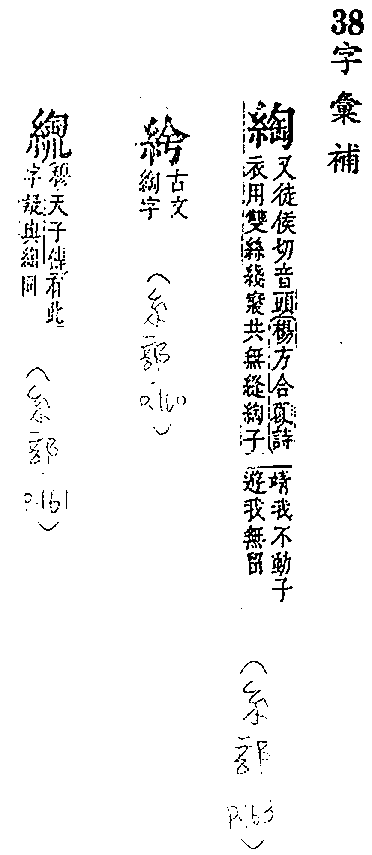 38
字彙補
綯
又徒侯切音頭楊方合歡詩
衣用雙絲綫寢共無縫綯子
靖我不動子
遊我無留
(糸部 P.163)
古文
字
(糸部 P.160)
穆天子傳有此
字疑與總同
(糸部 P.161)